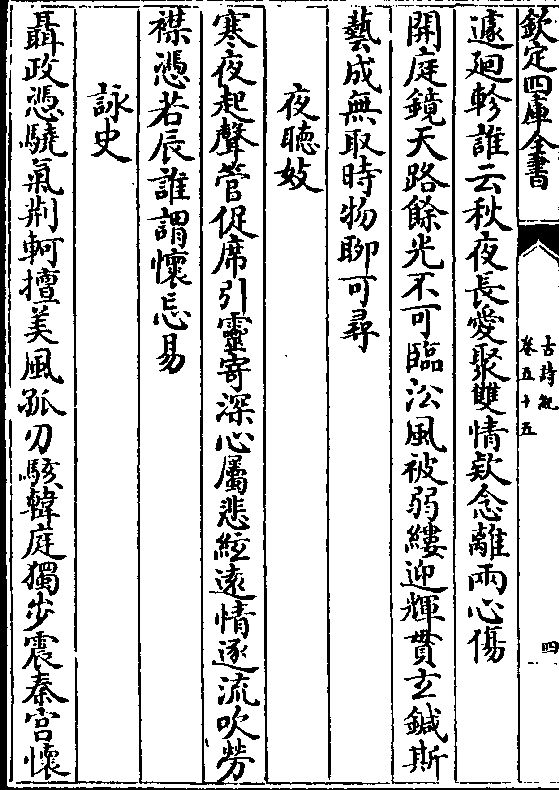 欽定四庫全書
古詩紀
卷五十五
四
遽廻軫誰云秋夜長愛聚雙情欵念離兩心傷
開庭鏡天路餘光不可臨沿風被弱縷迎輝貫玄鍼斯
藝成無取時物聊可尋
夜聽妓
寒夜起聲管促席引靈寄深心屬悲絃遠情逐流吹勞
襟憑若辰誰謂懷忘易
詠史
聶政憑驍氣荆軻擅美風孤刃駭韓庭獨步震秦宫懷